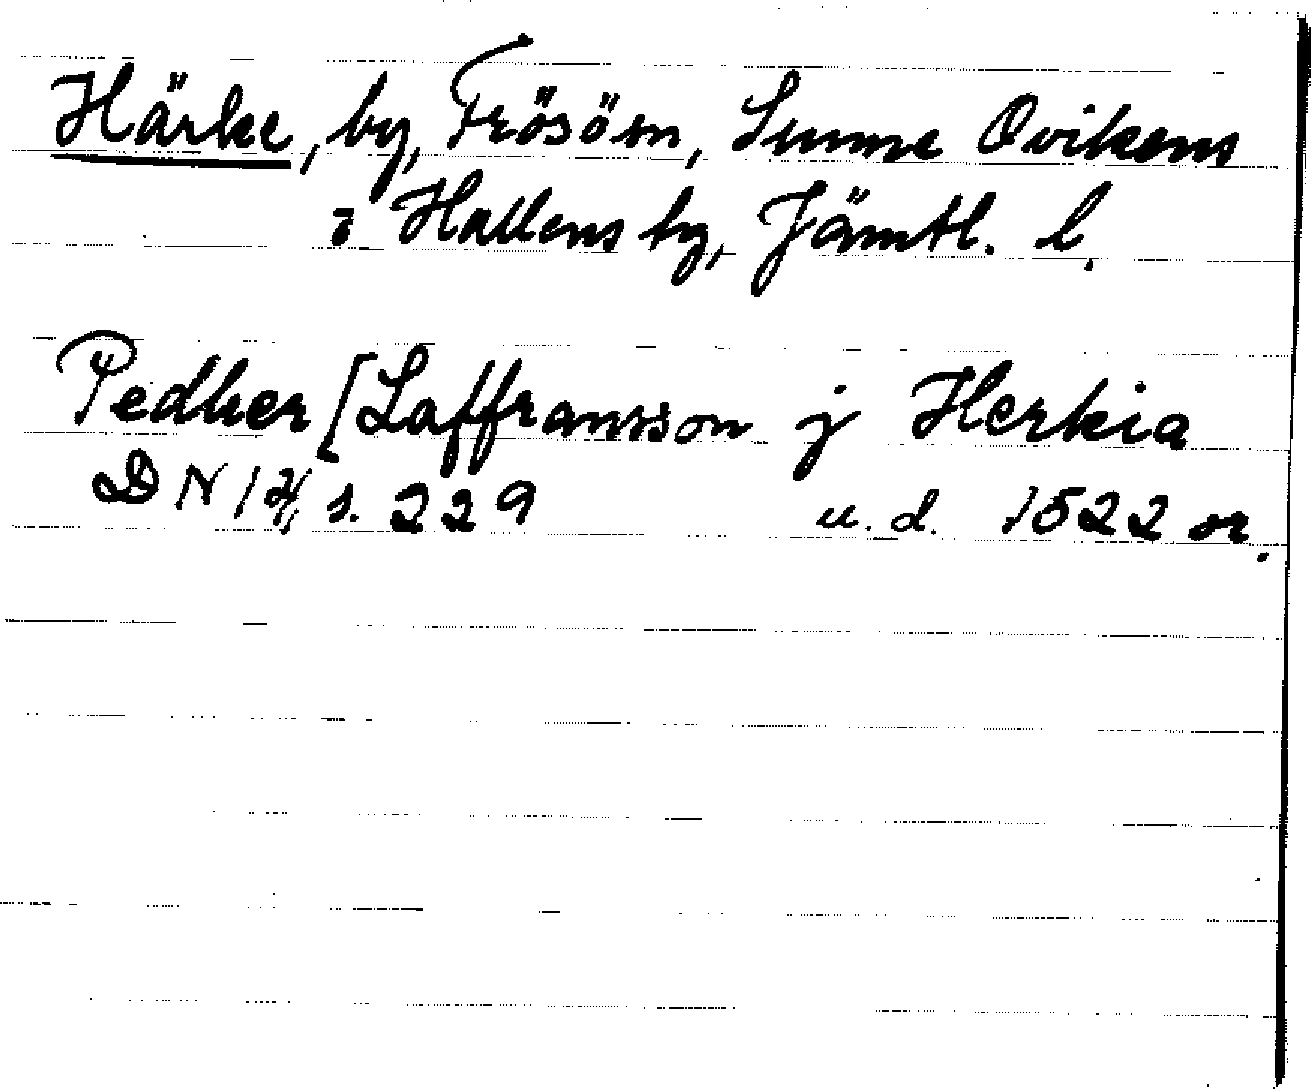 Härke, by, Frösön, Sunne Ovikens
o Hallens tg, Jämtl. l.
Pedher [Laffransson j Herkia
DN 14, s. 229 u. d. 1522 or.